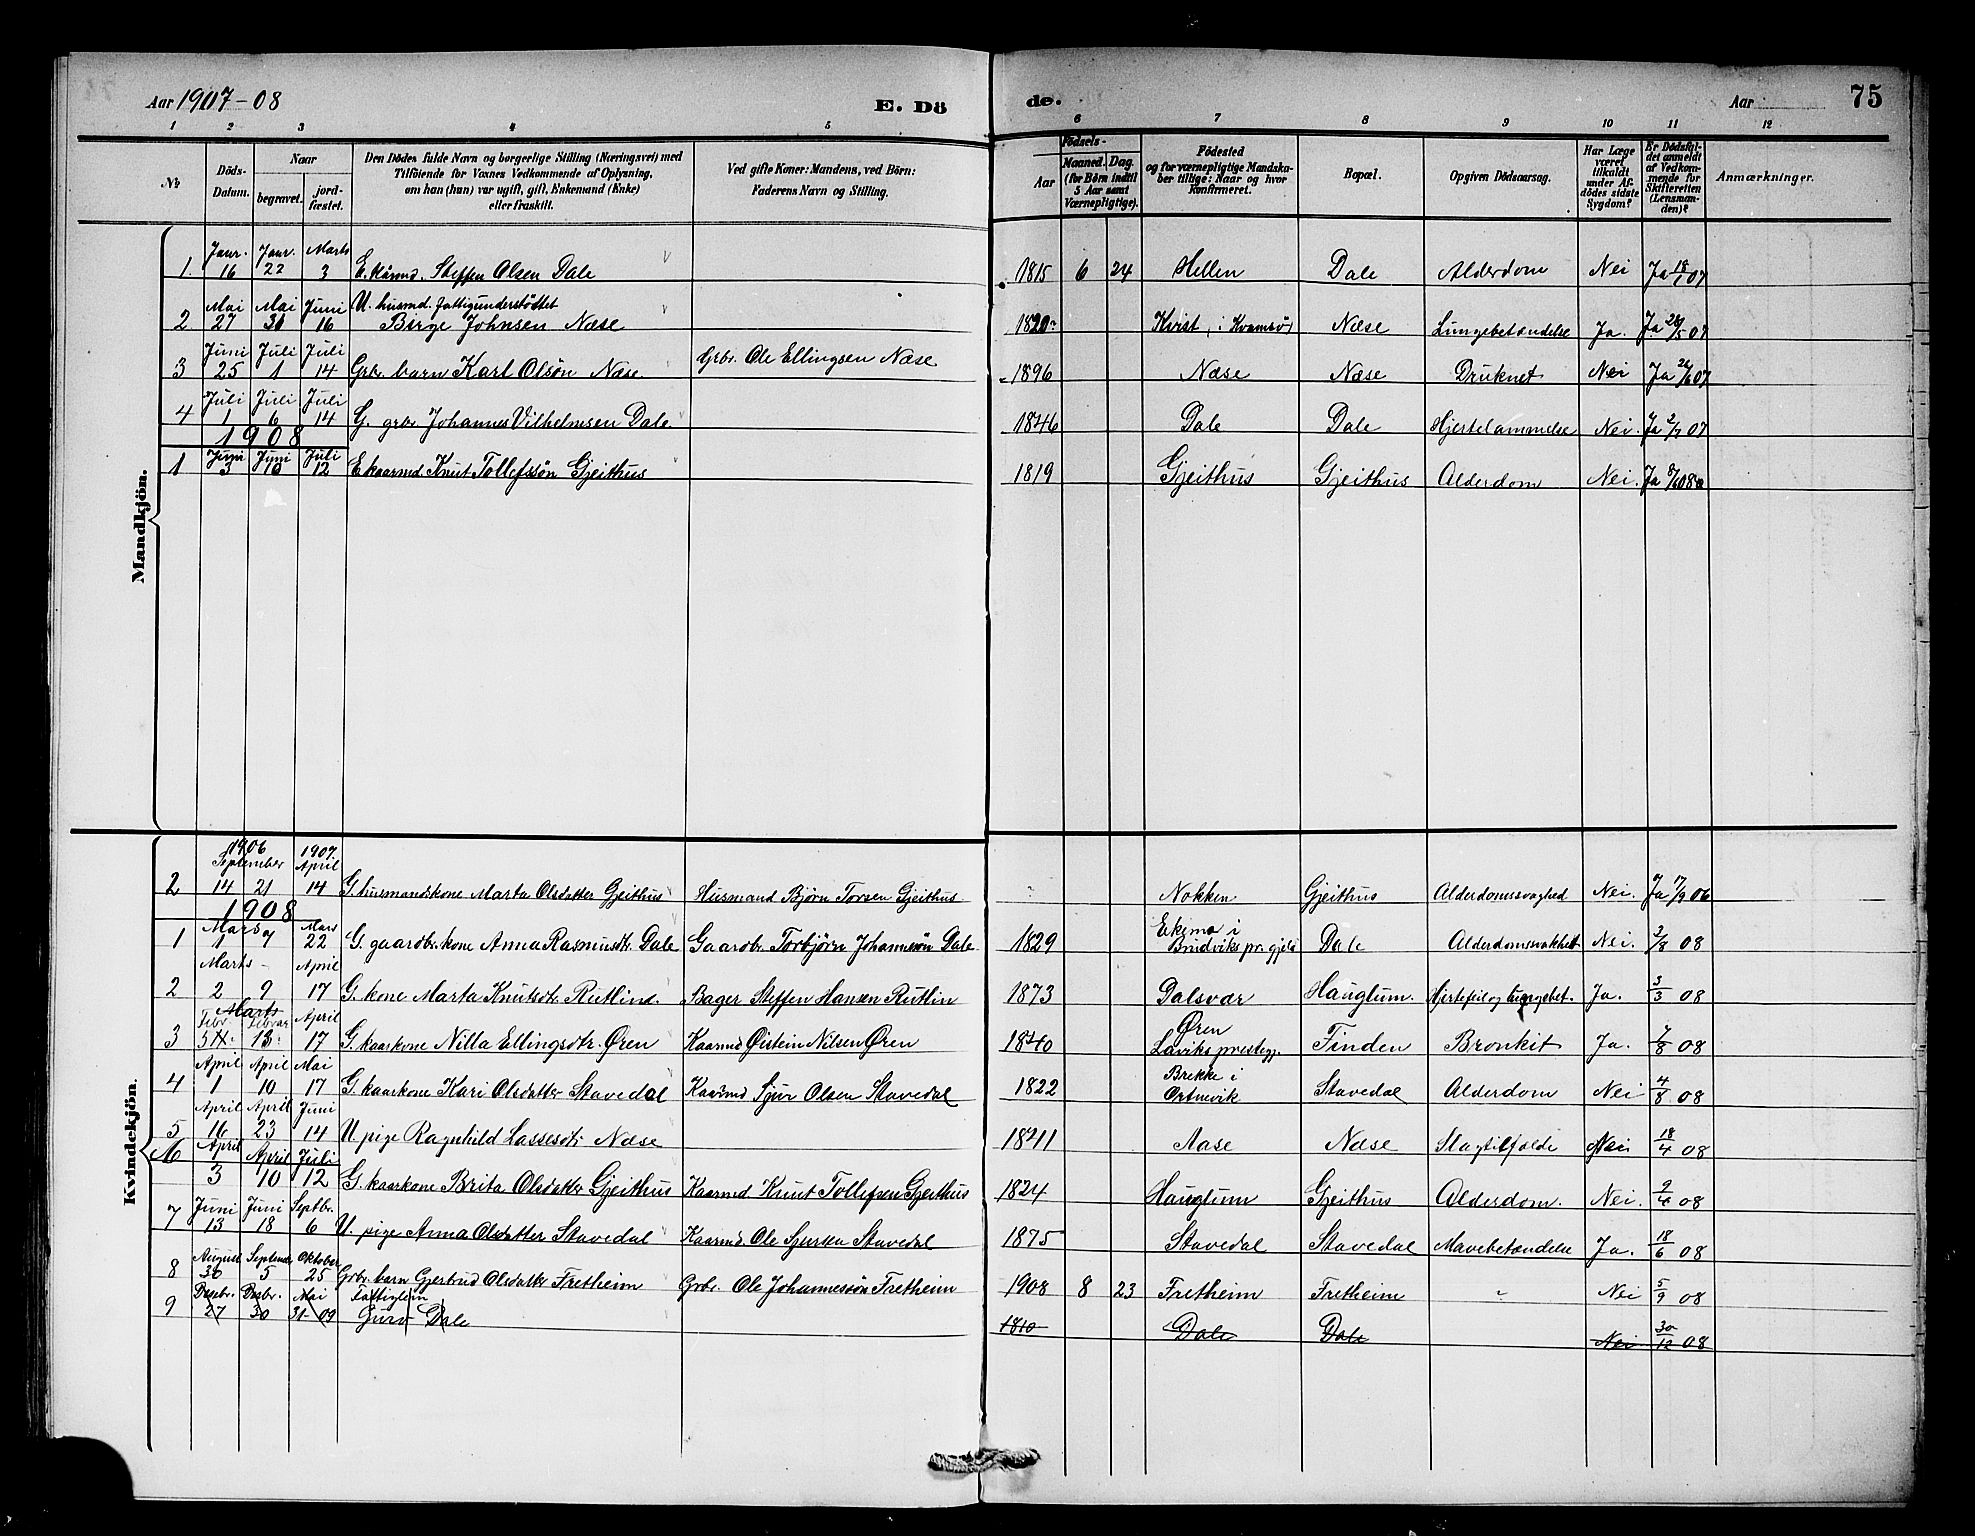 Aar 1907-08 E. Dö de. Aar 75
1 2 3 4 5 6 7 8 9 10 11 12
No. Döds-Datum. Naar begravet. jord-fæstet. Den Dödes fulde Navn og borgerlige Stilling (Næringsvei) med Tilföiende for Voxnes Vedkommende af Oplysning, om han (hun) var ugift, gift, Enkemand (Enke) eller fraskilt. Ved gifte Koner: Mandens, ved Börn: Faderens Navn og Stilling. Födsels- Aar Maaned. Dag. (for Börn indtil 5 Aar samt Værnepligtige). Födested og for værnepligtige Mandskaber tillige: Naar og hvor konfirmeret. Bopæl. Opgiven Dödsaarsag. Har Læge været tilkaldt under Afdödes sidste Sygdom? Er Dödsfaldet anmeldt af Vedkommende for Skifteretten (Lensmanden)? Anmærkninger.
Mandkjön.
1. Janr. 16 Janr. 22 Marts 3 E. kårmd. Steffen Olsen Dale 1815 6 24 Hellen Dale Alderdom Nei Ja 18/1 07
2 Mai 27 Mai 31 Juni 16 U. husmd. fattigunderstöttet Birge Johnsen Næse 1820 Kvist, i Kvamsö Næse Lungebetændelse Ja. Ja 28/5 07
3 Juni 25 Juli 1 Juli 14 Grbr. barn Karl Olsön Næse Grbr. Ole Ellingsen Næse 1896 Næse Næse Druknet Nei Ja 26/6 07
4 Juli 1 Juli 6 Juli 14 G. grbr Johannes Vilhelmsen Dale 1846 Dale Dale Hjertelammelse Nei. Ja 2/7 07
1908
1 Juni 3 Juni 10 Juli 12 E kaarmd. Knut Tollefssön Gjeithus 1819 Gjeithus Gjeithus Alderdom Nei. Ja 8/6 08
Kvindekjön.
1906 1907
2 September 14 21 April 14 G. husmandskone Marta Olsdatter Gjeithus Husmand Bjørn Torsen Gjeithus Nokken Gjeithus Alderdomssvaghed Nei. Ja 17/9 06
1908
1 Mars 1 7 Mars 22 G. gaardbr.kone Anna Rasmusdtr Dale Gaardbr. Torbjörn Johannsön Dale 1829 Ekemo i Brudviks pr.gjeld Dale Alderdomssvakhet Nei. 3/8 08
2 Marts 2 9 April 17 G. kone Marta Knutsdtr. Rutlind. Bager Steffen Hansen Rutlin 1873 Dalsvær Hauglum. Hjertefeil og lungebet. Ja. 3/3 08
3 Marts Febr. Febuar 13 April 17 G. kaarkone Nilla Ellingsdtr. Øren Kaarmd Øistein Nilsen Øren 1840 Øren Laviks prestegj. Finden Bronkit Ja. 7/8 08
4 April 1 April 10 Mai 17 G kaarkone Kari Olsdatter Stavedal Kaarmd Sjur Olsen Stavedal 1822 Brekke i Ortnevik Stavedal Alderdom Nei 4/8 08
5 April 16 April 23 Juni 14 U pige Ragnhild Lassesdtr Næse 1841 Aase Næse Slagtilfælde Nei 18/4 08
April 3 April 10 Juli 12 G. kaarkone Brita Olsdatter Gjeithus Kaarmd Knut Tollefsen Gjeithus 1824 Hauglum Gjeithus Alderdom. Nei. 9/4 08
7 Juni 13 Juni 18 Septbr. 6 U. pige Anna Olsdatter Stavedal Kaarmd. Ole Sjursen Stavedal 1875 Stavedal Stavedal Mavebetændelse Ja. 18/6 08
8 August 30 September 5 Oktober 25 Grbr. barn Gjertrud Olsdatter Fretheim Grbr. Ole Johannessön Fretheim 1908 8 23 Fretheim Fretheim " Nei 5/9 08
9 Desbr. 27 Desbr. 30 Mai 31-09 Fattiglem Guro Dale 1810 Dale Dale Nei 30/12 08